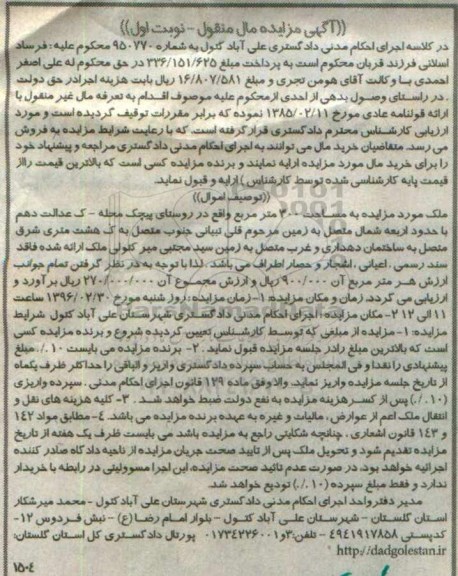 ((آگهی مزایده مال منقول - نوبت اول))
در کلاسه اجرای احکام مدنی دادگستری علی آباد کتول به شماره ۹۵۰۷۷۰ محکوم علیه : فرساد
اسلانی فرزند قربان محکوم است به پرداخت مبلغ ۳۳۶/۱۵۱/۶۲۵ در حق محکوم له علی اصغر
احمدی با و کالت آقای هومن تجری و مبلغ ۱۶/۸۰۷/۵۸۱ ریال بابت هزینه اجرا در حق دولت
. در راستای وصول بدهی از احدی از محکوم علیه موصوف اقدام به تعرفه مال غیر منقول با
ارائه قولنامه عادی مورخ ۱۳۸۵/۰۲/۱۱ نموده که برابر مقررات توقیف گردیده است و مورد
ارزیابی کارشناس محترم دادگستری قرار گرفته است. که با رعایت شرایط مزایده به فروش
می رسد. متقاضیان خرید مال می توانند به اجرای احکام مدنی دادگستری مراجعه و پیشنهاد خود
را برای خرید مال مورد مزایده ارایه نمایند و برنده مزایده کسی است که بالاترین قیمت را از
قیمت پایه کارشناسی شده توسط کارشناس ) ارایه و قبول نماید.
((توصیف اموال))
ملک مورد مزایده به مساحت ۳۰۰ متر مربع واقع در روستای پیچک محله - ک عدالت دهم
با حدود اربعه شمال متصل به زمین مرحوم قلی تبیانی جنوب متصل به ک هشت متری شرق
متصل به ساختمان دهداری و غرب متصل به زمین سید مجتبی میر کتولی ملک ارائه شده فاقد
سند رسمی . اعیانی ، اشجار و حصار اطراف می باشد. لذا با توجه به در نظر گرفتن تمام جوانب
ارزش هر متر مربع آن ۹۰۰/۰۰۰ ریال و ارزش مجموع آن ۲۷۰/۰۰۰/۰۰۰ ریال بر آورد و
ارزیابی می گردد. زمان و مکان مزایده: ۱- زمان مزایده : روز شنبه مورخ ۱۳۹۶/۰۲/۳۰ ساعت
۱۱ الی ۱۲ ۲- مکان مزایده: اجرای احکام مدنی دادگستری شهرستان علی آباد کتول شرایط
مزایده: ۱- مزایده از مبلغی که توسط کارشناس تعیین گردیده شروع و برنده مزایده کسی
است که بالاترین مبلغ را در جلسه مزایده قبول نماید . ۲- برنده مزایده می بایست ۱۰./. مبلغ
پیشنهادی را نقدا و فی المجلس به حساب سپرده دادگستری واریز و الباقی را حداکثر ظرف یکماه
از تاریخ جلسه مزایده واریز نماید. والا وفق ماده ۱۲۹ قانون اجرای احکام مدنی . سپرده واریزی
(۱۰./.) پس از کسر هزینه مزایده به نفع دولت ضبط خواهد شد . ۳- کلیه هزینه های نقل و
انتقال ملک اعم از عوارض ، مالیات و غیره به عهده برنده مزایده می باشد. ۴- مطابق مواد ۱۴۲
و ۱۴۳ قانون اشعاری . چنانچه شکایتی راجع به مزایده باشد می بایست ظرف یک هفته از تاریخ
مزایده تقدیم شود و تحویل ملک پس از تایید صحت جریان مزایده از ناحیه دادگاه صادر کننده
اجرائیه خواهد بود. در صورت عدم تائید صحت مزایده، این اجرا مسوولیتی در رابطه با خریدار
ندارد و فقط مبلغ سپرده (۱۰./.) تودیع خواهد شد.
مدیر دفتر واحد اجرای احکام مدنی دادگستری شهرستان علی آباد کتول - محمد میرشکار
استان گلستان - شهرستان علی آباد کتول - بلوار امام رضا (ع) - نبش فردوس ۱۲-
کدپستی ۴۹۴۱۹۱۷۸۵۸ - تلفن:۳و۰۱۷۳۴۲۲۶۰۰۱ پورتال دادگستری کل استان گلستان:
http://dadgolestan.ir
۱۵۰۴